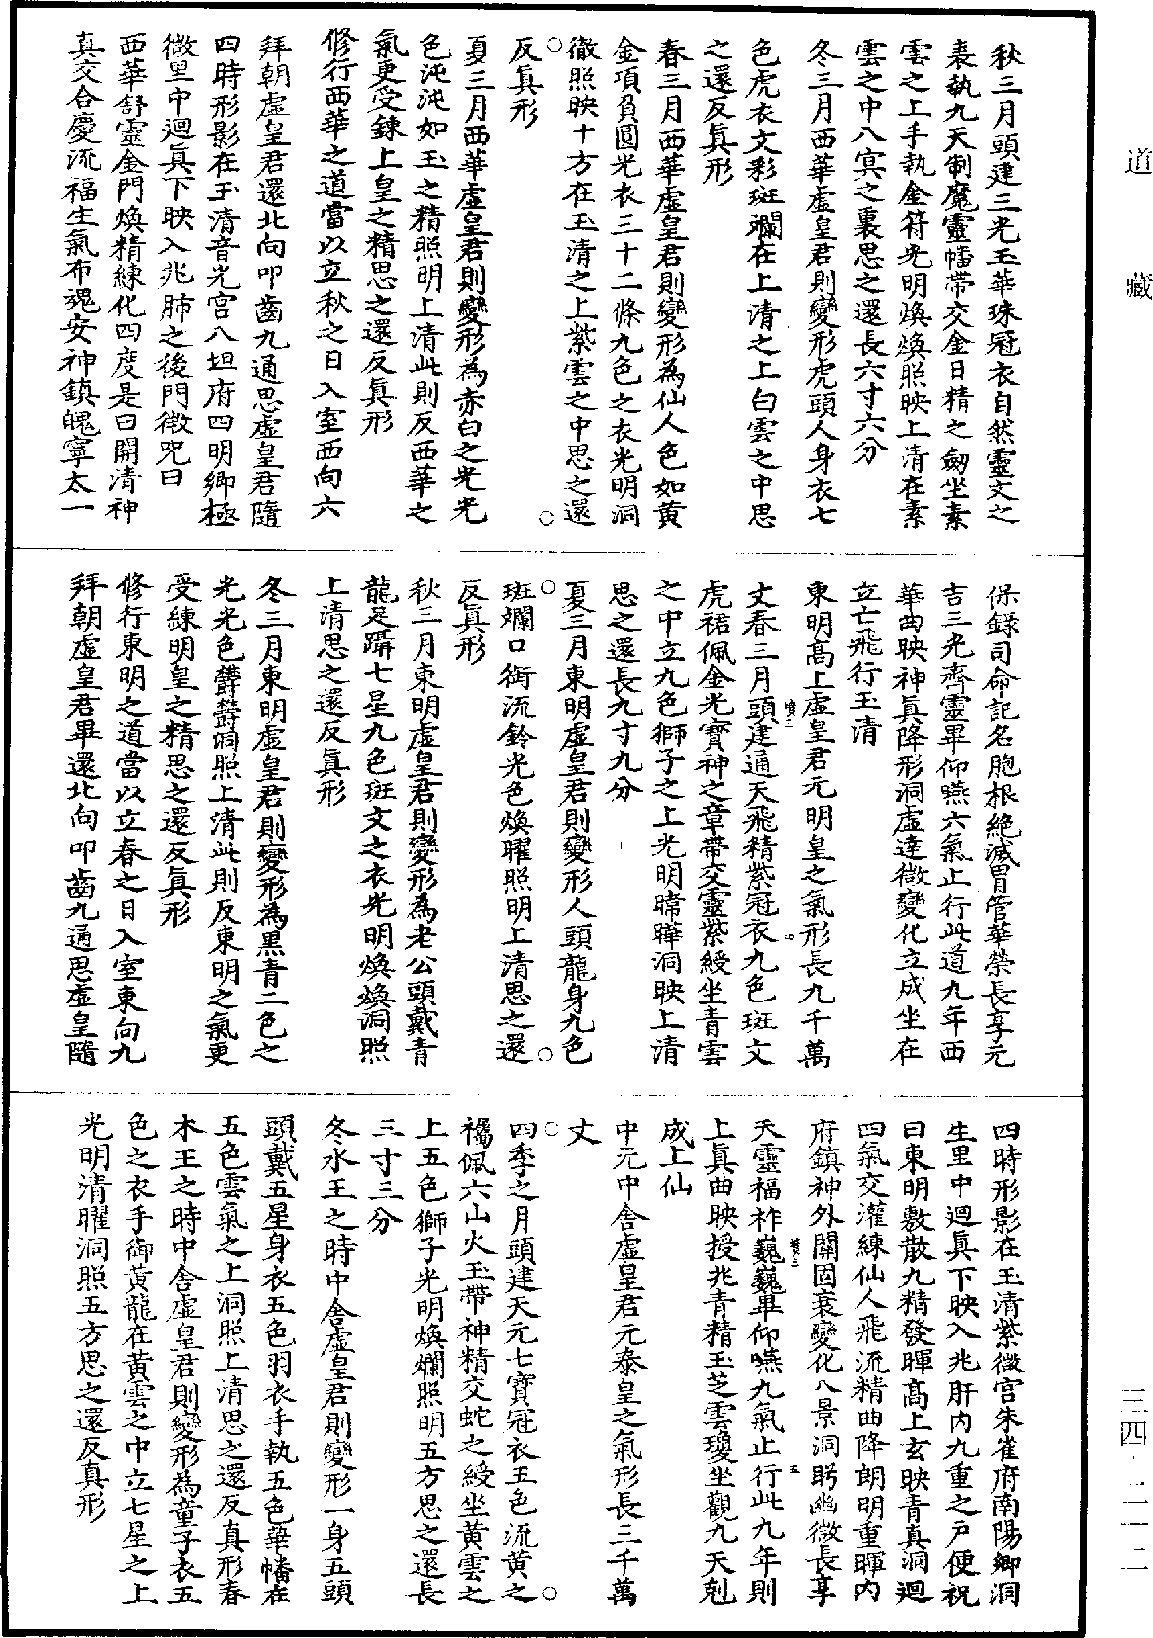 秋三月頭建三光玉華珠冠衣自然靈文之
表執九天制魔靈幡帶交金日精之劒坐素
雲之上手執金符光明煥煥照映上清在素
雲之中八冥之裏思之還長六寸六分
冬三月西華虛皇君則變形虎頭人身衣七
色虎衣文彩斑斕在上清之上白雲之中思
之還反真形
春三月西華虛皇君則變形為仙人色如黃
金項負圓光衣三十二條九色之衣光明洞
徹照映十方在玉清之上紫雲之中思之還
反真形
夏三月西華虛皇君則變形為赤白之光光
色沌沌如玉之精照明上清此則反西華之
氣更受鍊上皇之精思之還反真形
修行西華之道當以立秋之日入室西向六
拜朝虛皇君還北向叩齒九通思虛皇君隨
四時形影在玉清音光宮八坦府四明鄉極
微里中迴真下映入兆肺之後門微咒曰
西華舒靈金門煥精練化四度是曰開清神
真交合慶流福生氣布魂安神鎮魄寧太一
保錄司命記名胞根絕滅胃管華榮長享元
吉三光齊靈畢仰嚥六氣止行此道九年西
華曲映神真降形洞虛達微變化立成坐在
立亡飛行玉清
東明高上虛皇君元明皇之氣形長九千萬
丈春三月頭建通天飛精紫冠衣九色斑文
虎裙佩金光寶神之章帶交靈紫綬坐青雲
之中立九色獅子之上光明暐曄洞映上清
思之還長九寸九分
夏三月東明虛皇君則變形人頭龍身九色
斑斕口銜流鈴光色煥曜照明上清思之還
反真形
秋三月東明虛皇君則變形為老公頭戴青
龍足躡七星九色斑文之衣光明煥煥洞照
上清思之還反真形
冬三月東明虛皇君則變形為黑青二色之
光光色欝欝洞照上清此則反東明之氣更
受練明皇之精思之還反真形
修行東明之道當以立春之日入室東向九
拜朝虛皇君畢還北向叩齒九通思虛皇隨
四時形影在玉清紫微宮朱雀府南陽鄉洞
生里中迴真下映入兆肝內九重之戶便祝
曰東明敷散九精發暉高上玄映青真洞迴
四氣交灌練仙人飛流精曲降朗明重暉內
府鎮神外關固衰變化八景洞眄幽微長享
天靈福祚巍巍畢仰嚥九氣止行此九年則
上真曲映授兆青精玉芝雲瓊坐觀九天剋
成上仙
中元中舍虛皇君元泰皇之氣形長三千萬
丈
四季之月頭建天元七寶冠衣五色流黃之
襡佩六山火玉帶神精交蛇之綬坐黃雲之
上五色獅子光明煥爛照明五方思之還長
三寸三分
冬水王之時中舍虛皇君則變形一身五頭
頭戴五星身衣五色羽衣手執五色華幡在
五色雲氣之上洞照上清思之還反真形春
木王之時中舍虛皇君則變形為童子衣五
色之衣手御黃龍在黃雲之中立七星之上
光明清曜洞照五方思之還反真形
道藏
三四·二一二